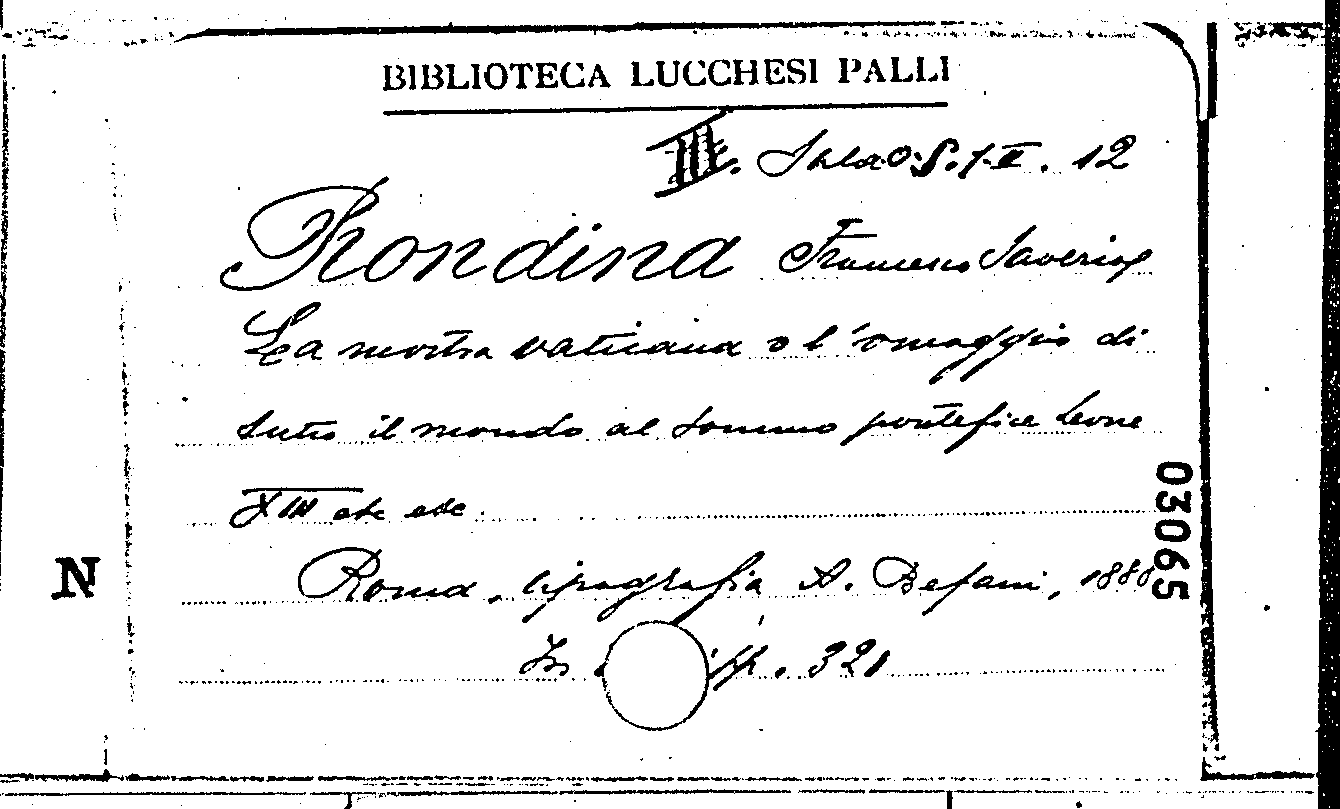 BIBLIOTECA LUCCHESI PALLI
III. Sala O.S. I. II. 12
Rondina Francesco Saverio
La mostra vaticana o l'omaggio di
tutto il mondo al sommo pontefice Leone
XIII etc etc.
03065
N
Roma, tipografia A. Befani, 1888
In pp. 321